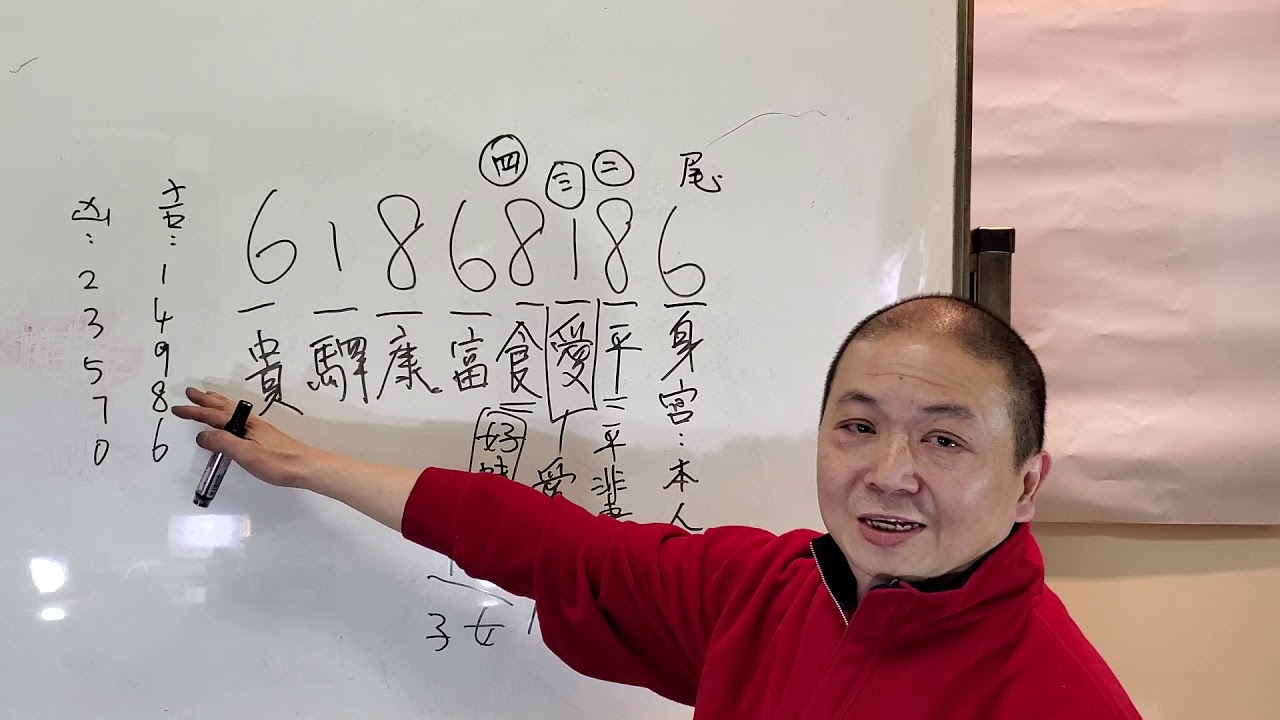 四 三 二 尾
6 1 8 6 8 1 8 6
貴 驛 康 富 食 愛 平 身宮:本人
二平輩
好
愛
子女
吉:
1
4
9
8
6
凶:
2
3
5
7
0